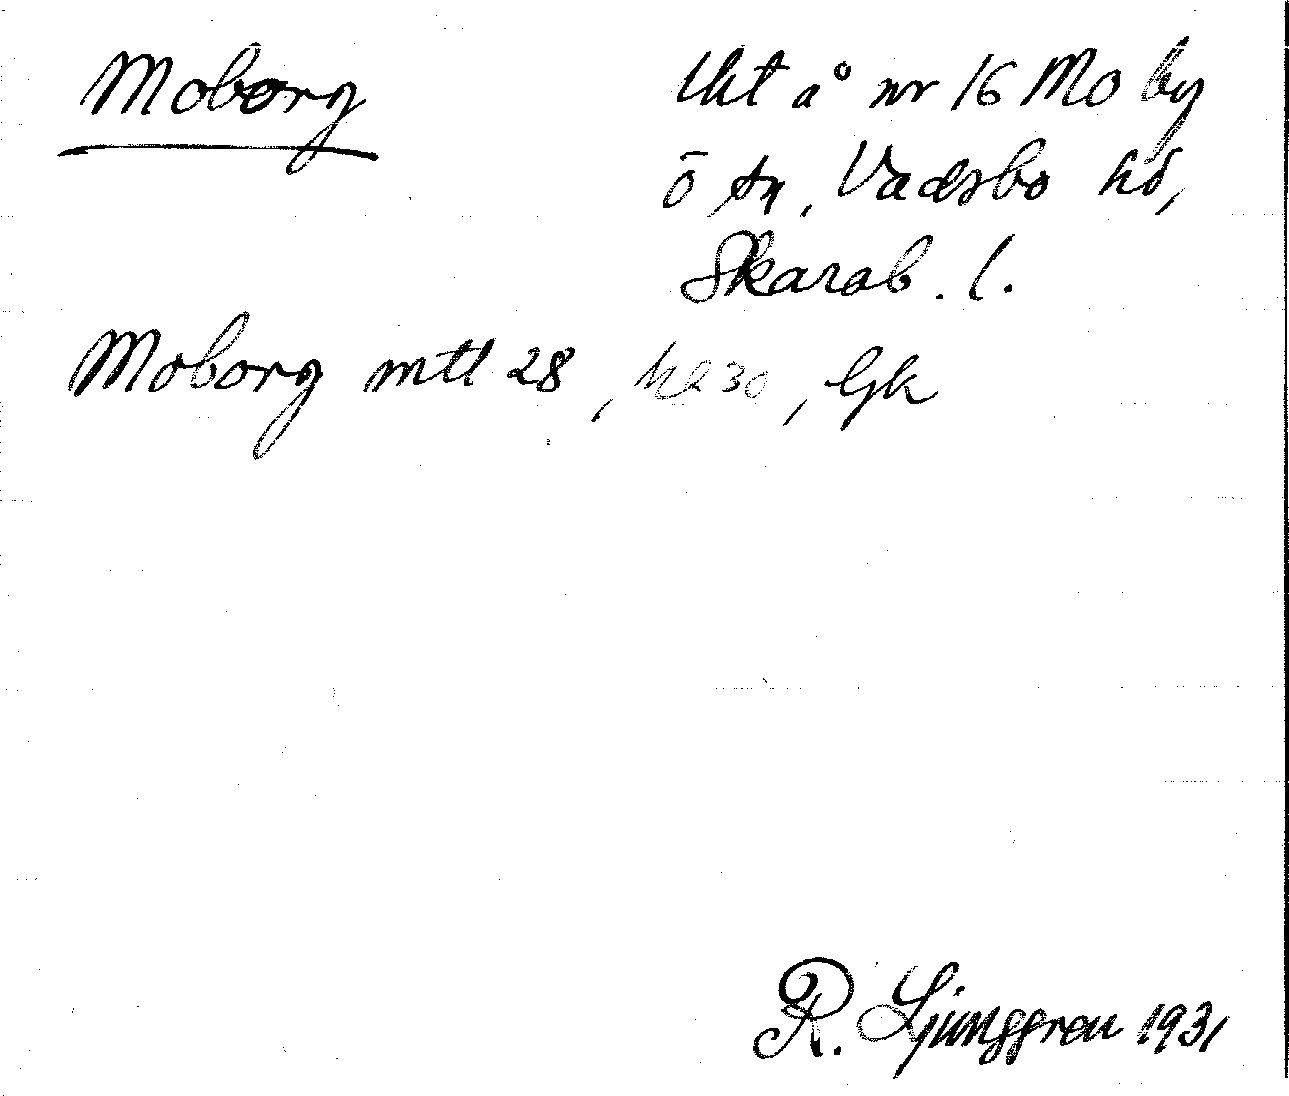 Moborg
Uht å nr 16 Mo by
ö sn, Vadsbo hd,
Skarab. l.
Moborg mtl 28, hl 30, Gk
R. Ljunggren 1931